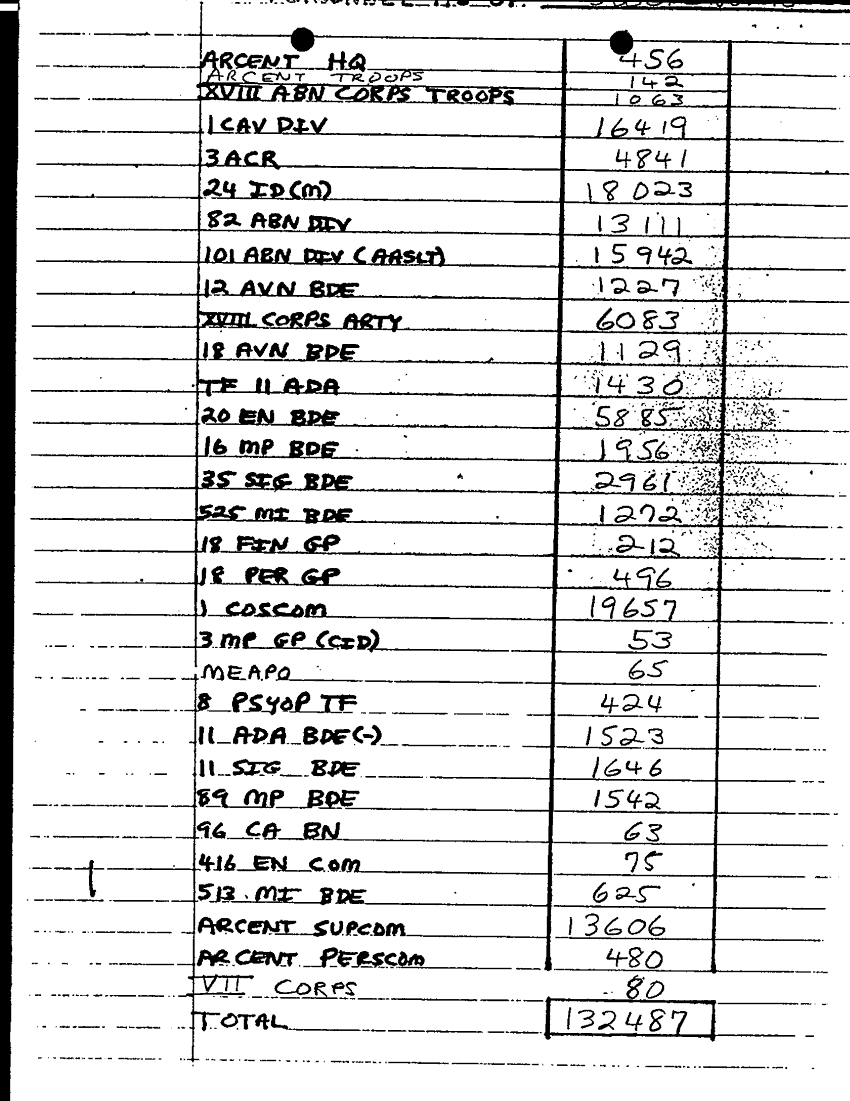 ARCENT HQ 456
ARCENT TROOPS 142
XVIII ABN CORPS TROOPS 1063
1 CAV DIV 16419
3 ACR 4841
24 ID(M) 18023
82 ABN DIV 13111
101 ABN DIV (AASLT) 15942
12 AVN BDE 1227
XVIII CORPS ARTY 6083
18 AVN BDE 1129
TF 11 ADA 1430
20 EN BDE 5885
16 MP BDE 1956
35 SIG BDE 2961
525 MI BDE 1272
18 FIN GP 212
18 PER GP 496
1 COSCOM 19657
3 MP GP (CID) 53
MEAPO 65
8 PSYOP TF 424
11 ADA BDE(-) 1523
11 SIG BDE 1646
89 MP BDE 1542
96 CA BN 63
416 EN COM 75
513 MI BDE 625
ARCENT SUPCOM 13606
ARCENT PERSCOM 480
VII CORPS 80
TOTAL 132487